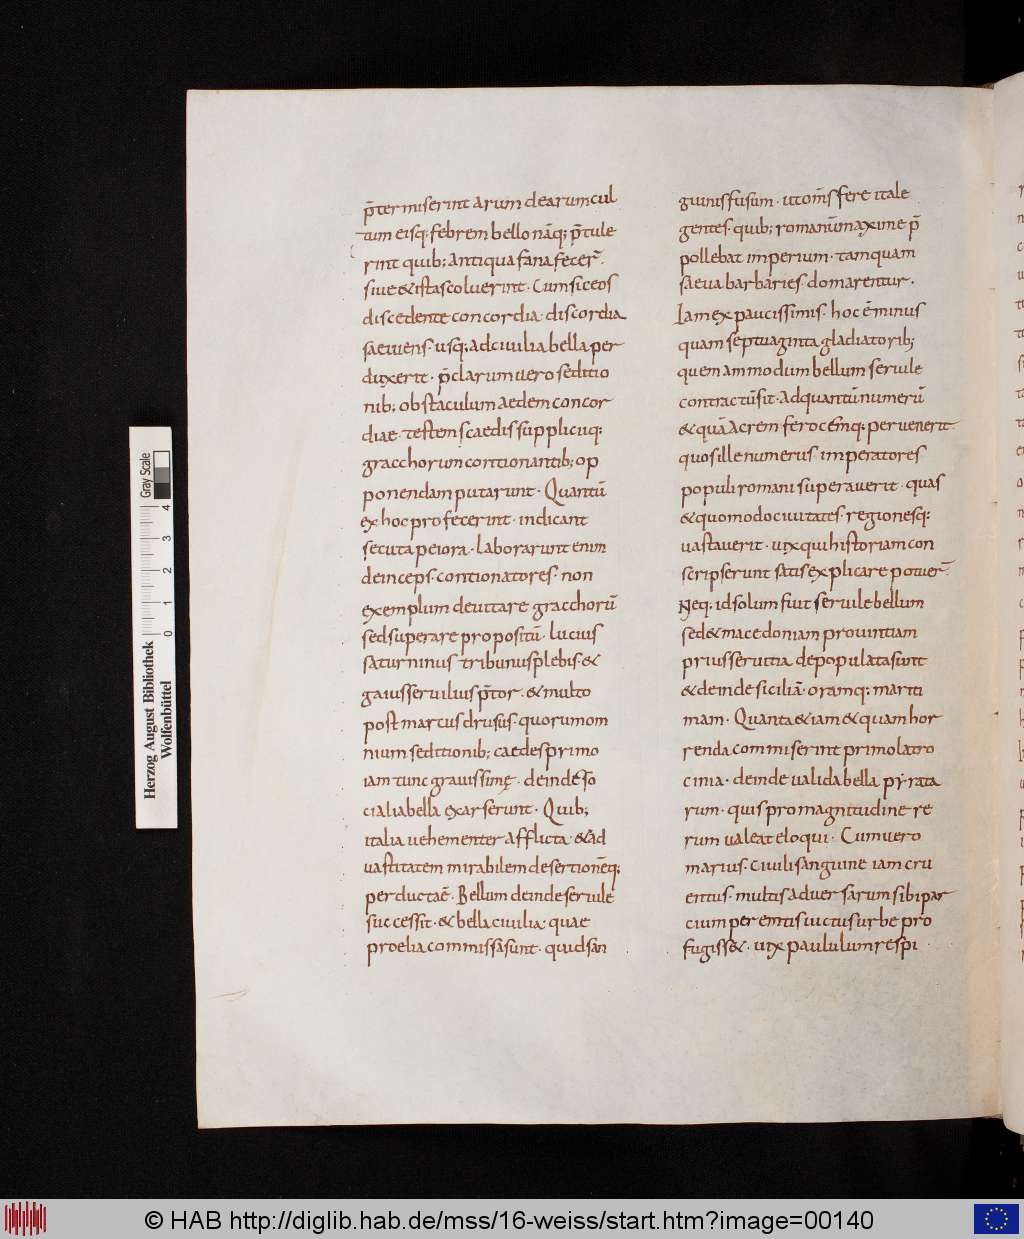 p̄termiserint arum dearum cul
tum eisq; febrem bellonāq; p̄tule
rint quib; antiqua fana fecer̄.
siue & istas coluerint. Cum sic eos
discedente concordia. discordia
saeuiens. usq; ad ciuilia bella per
duxerit. p̄clarum uero seditio
nib; obstaculum aedem concor
diae. testem scaedis suppliciiq;
gracchorum contionantib; op
ponendam putarunt. Quantū
ex hoc profecerint. indicant
secuta peiora. laborarunt enim
deinceps. contionatores. non
exemplum deuitare gracchorū
sed superare propositū. lucius
saturninus tribunus plebis. &
gaius seruilius p̄tor. & multo
post marcus drusus. quorum om
nium seditionib; caedes primo
iam tunc grauissimę. deinde so
cialia bella exarserunt. Quib;
italia uehementer afflicta. & ad
uastitatem mirabilem desertionēq;
perducta ē. Bellum deinde seruile
successit. & bella ciuilia. quae
proelia commissa sunt. quid san
guinis fusum. ut om̄s fere itale
gentes. quib; romanū maxime p̄
pollebat imperium. tamquam
saeua barbaries domarentur.
Iam ex paucissimis. hoc ē minus
quam septuaginta gladiatorib;
quem ammodum bellum seruile
contractū sit. Ad quantū numerū
& quā acrem ferocemq; peruenerit
quos ille numerus. imperatores
populi romani superauerit. quas
& quomodo ciuitates. regionesq;
uastauerit. uix qui historiam con
scripserunt satis explicare potuer̄.
Neq; id solum fuit seruile bellum
sed & macedoniam prouintiam
prius seruitia depopulata sunt
& deinde siciliā. oramq; mariti
mam. Quanta & iam & quam hor
renda commiserint primo latro
cinia. deinde ualida bella pyrata
rum. quis pro magnitudine re
rum ualeat eloqui. Cum uero
marius. ciuili sanguine iam cru
entus. multis aduersarum sibi par
cium peremtis uictus urbe pro
fugiss&. uix paululum respi
Gray Scale
0 1 2 3 4
Herzog August Bibliothek
Wolfenbüttel
© HAB http://diglib.hab.de/mss/16-weiss/start.htm?image=00140